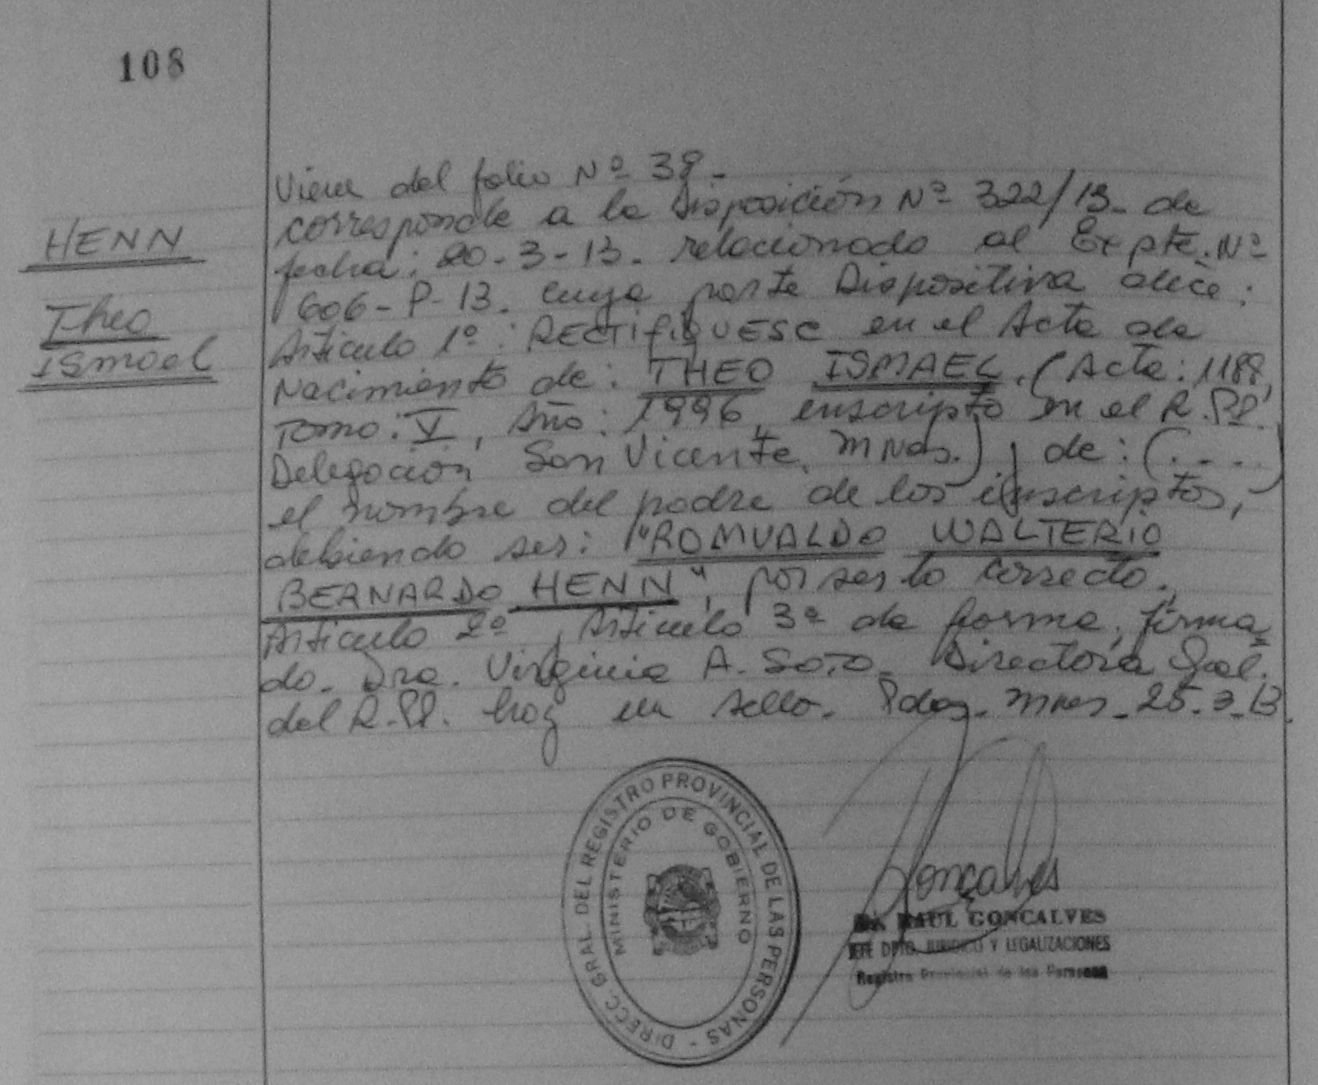 108
HENN
Theo
ISmael
Viene del folio Nº 39-
corresponde a la Disposición Nº 322/13- de
fecha: 20-3-13. relacionado al Expte. Nº
606-P-13. cuya parte Dispositiva dice:
Artículo 1º: RECTIFIQUESE en el Acta de
Nacimiento de: THEO ISMAEL. (Acta: 1188,
Tomo: V, Año: 1996, inscripto en el R.PP.
Delegación San Vicente, Mnes.) y de: (....)
el nombre del padre de los inscriptos,
debiendo ser: "ROMUALDO WALTERIO
BERNARDO HENN", por ser lo correcto.
Artículo 2º, Artículo 3º de forma, firma
do. Dra. Virginia A. Soto. Directora Gral.
del R.PP. hay un sello. Pdas. Mnes. 25-3-13.
DIRECC. GRAL. DEL REGISTRO PROVINCIAL DE LAS PERSONAS -
MINISTERIO DE GOBIERNO
Gonçalves
RAUL GONCALVES
JEFE DPTO. JURIDICO Y LEGALIZACIONES
Registro Provincial de las Personas